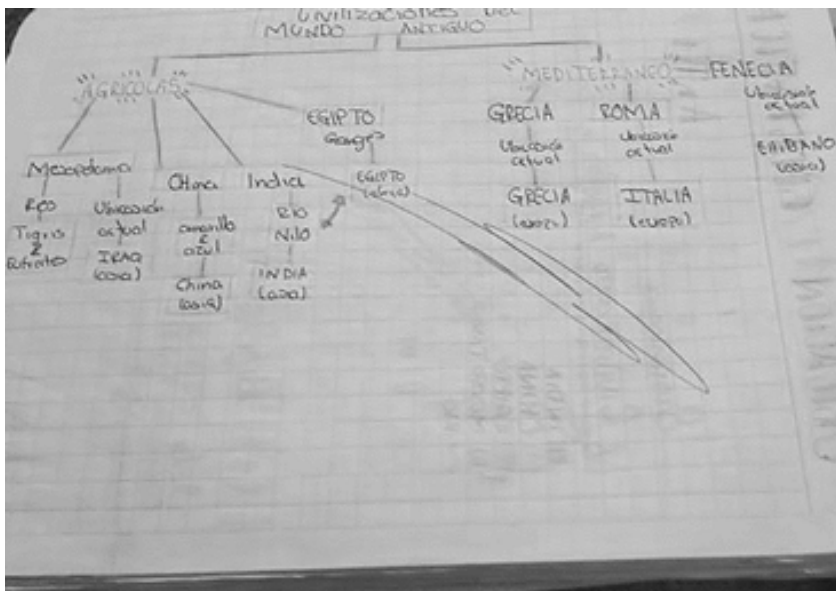 CIVILIZACIONES DEL
MUNDO ANTIGUO
AGRICOLAS
Mesopotamia
Rios
Tigris
y
Eufrates
Ubicación
actual
IRAQ
(asia)
China
amarillo
y
azul
China
(asia)
India
RIO
NILO
INDIA
(asia)
EGIPTO
Ganges
EGIPTO
(africa)
MEDITERRANEO
GRECIA
Ubicación
actual
GRECIA
(europa)
ROMA
Ubicación
actual
ITALIA
(europa)
FENECIA
Ubicación
actual
(asia)